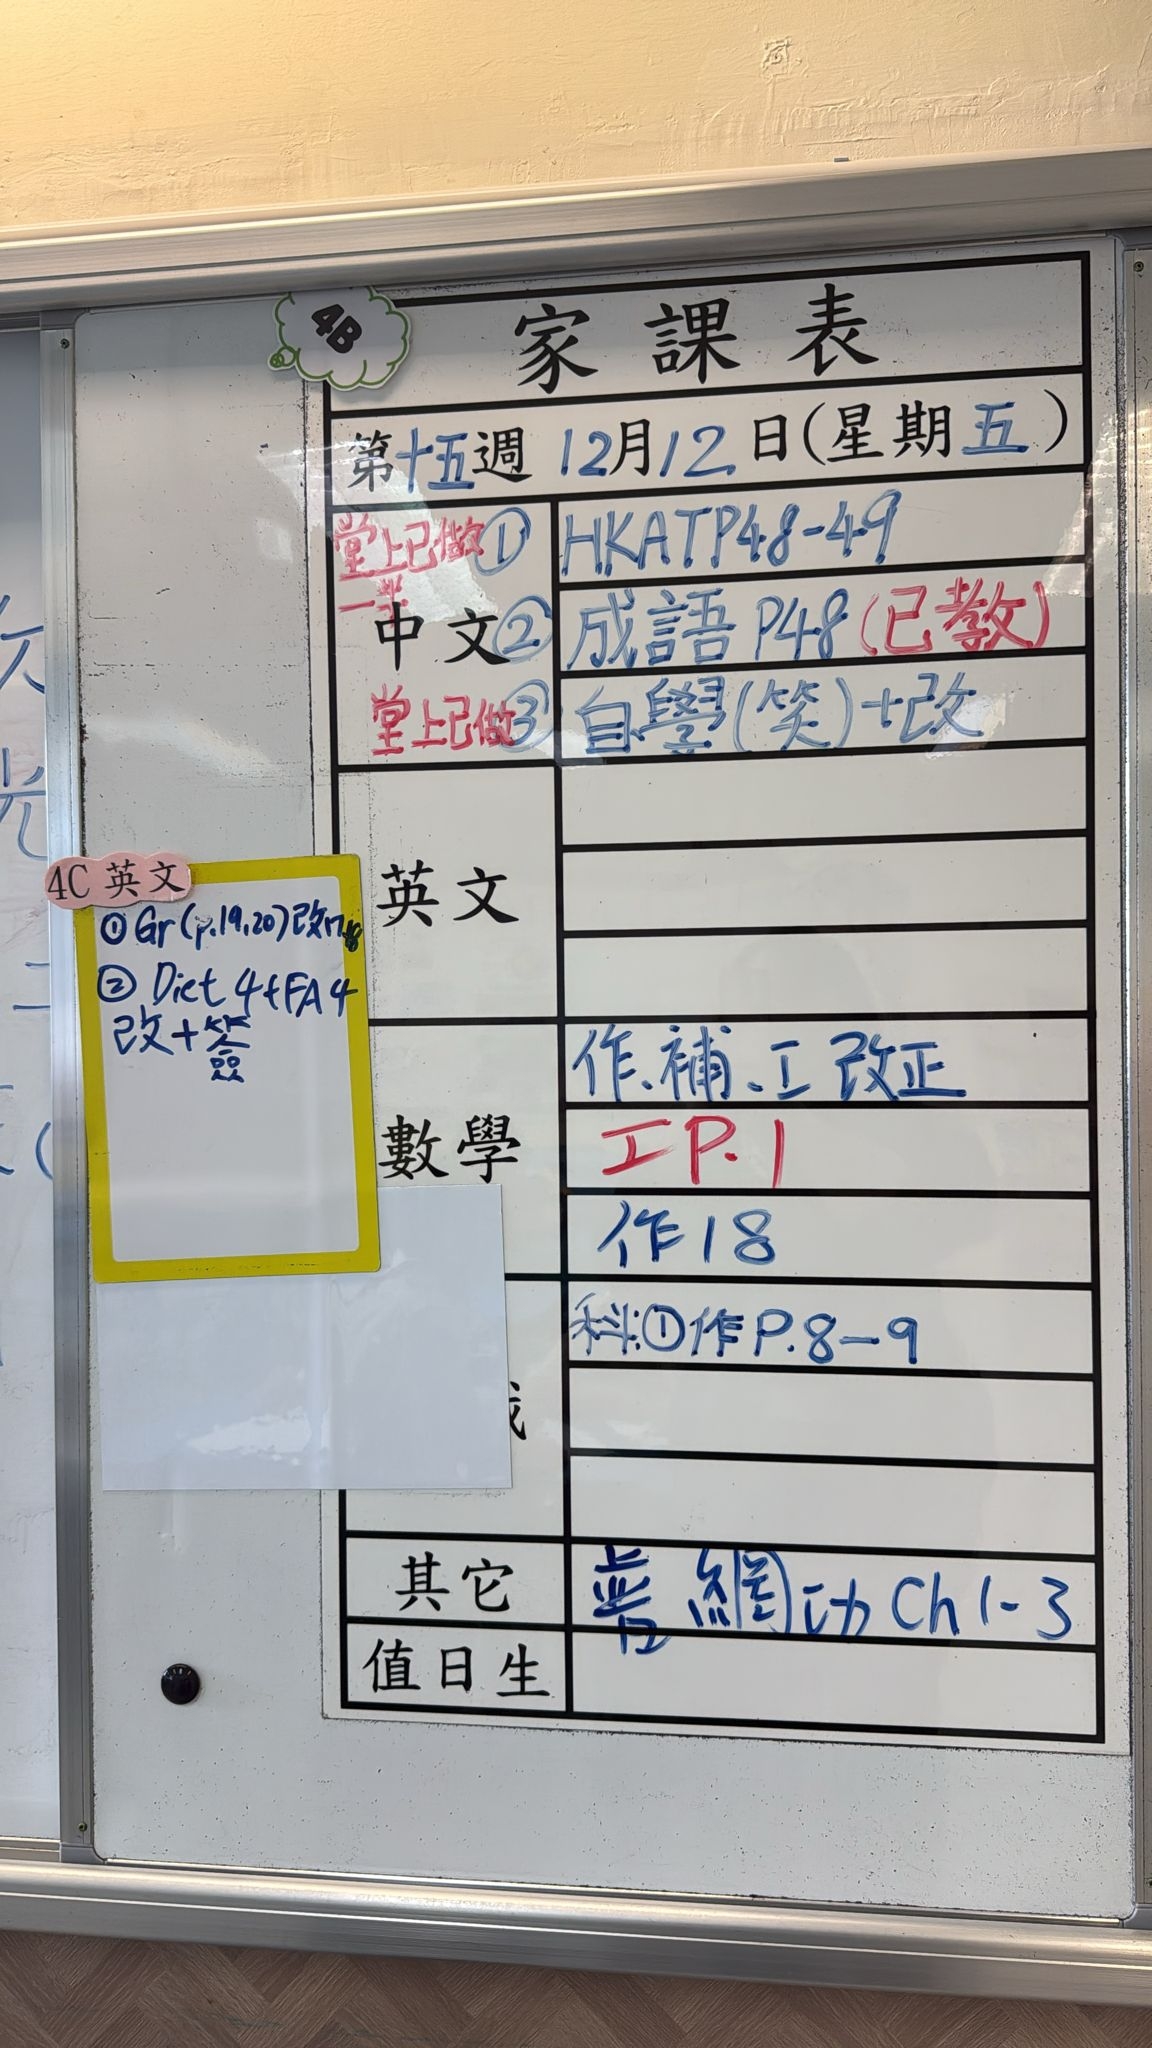 4B
家課表
第十五週 12月12日(星期五)
堂上已做一半
中文
① HKAT P48-49
② 成語 P48 (已教)
堂上已做
③ 自學(笑)+改
英文
4C 英文
① Gr (p.19,20) 改17,18
② Dict 4+FA4
改+簽
數學
作、補、工 改正
工P.1
作18
科:①作P.8-9
其它
普 網功 Ch 1-3
值日生